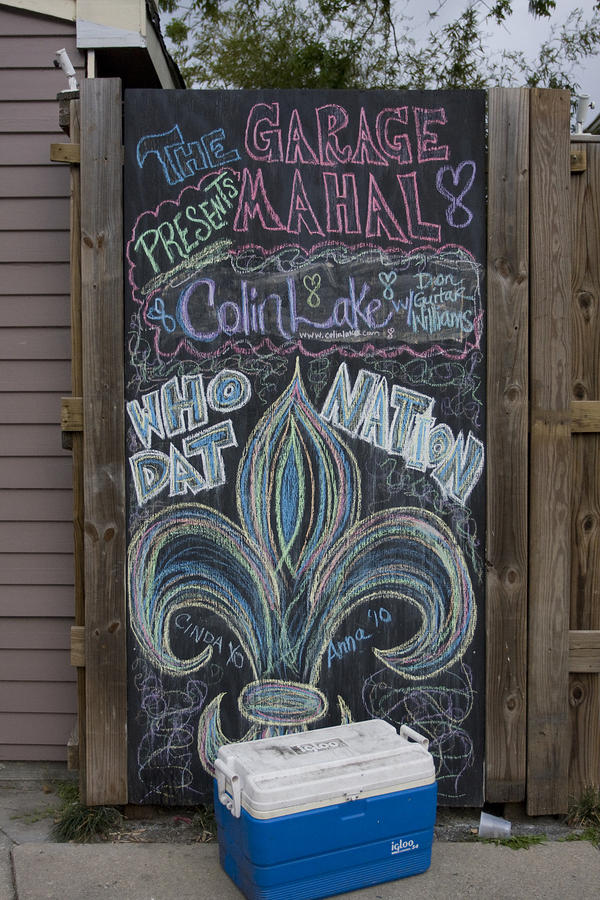 THE GARAGE
PRESENTS MAHAL
Colin Lake
www.colinlake.com
w/ Guitar
Williams
WHO DAT
NATION
CINDA '10
Anna '10
igloo
igloo